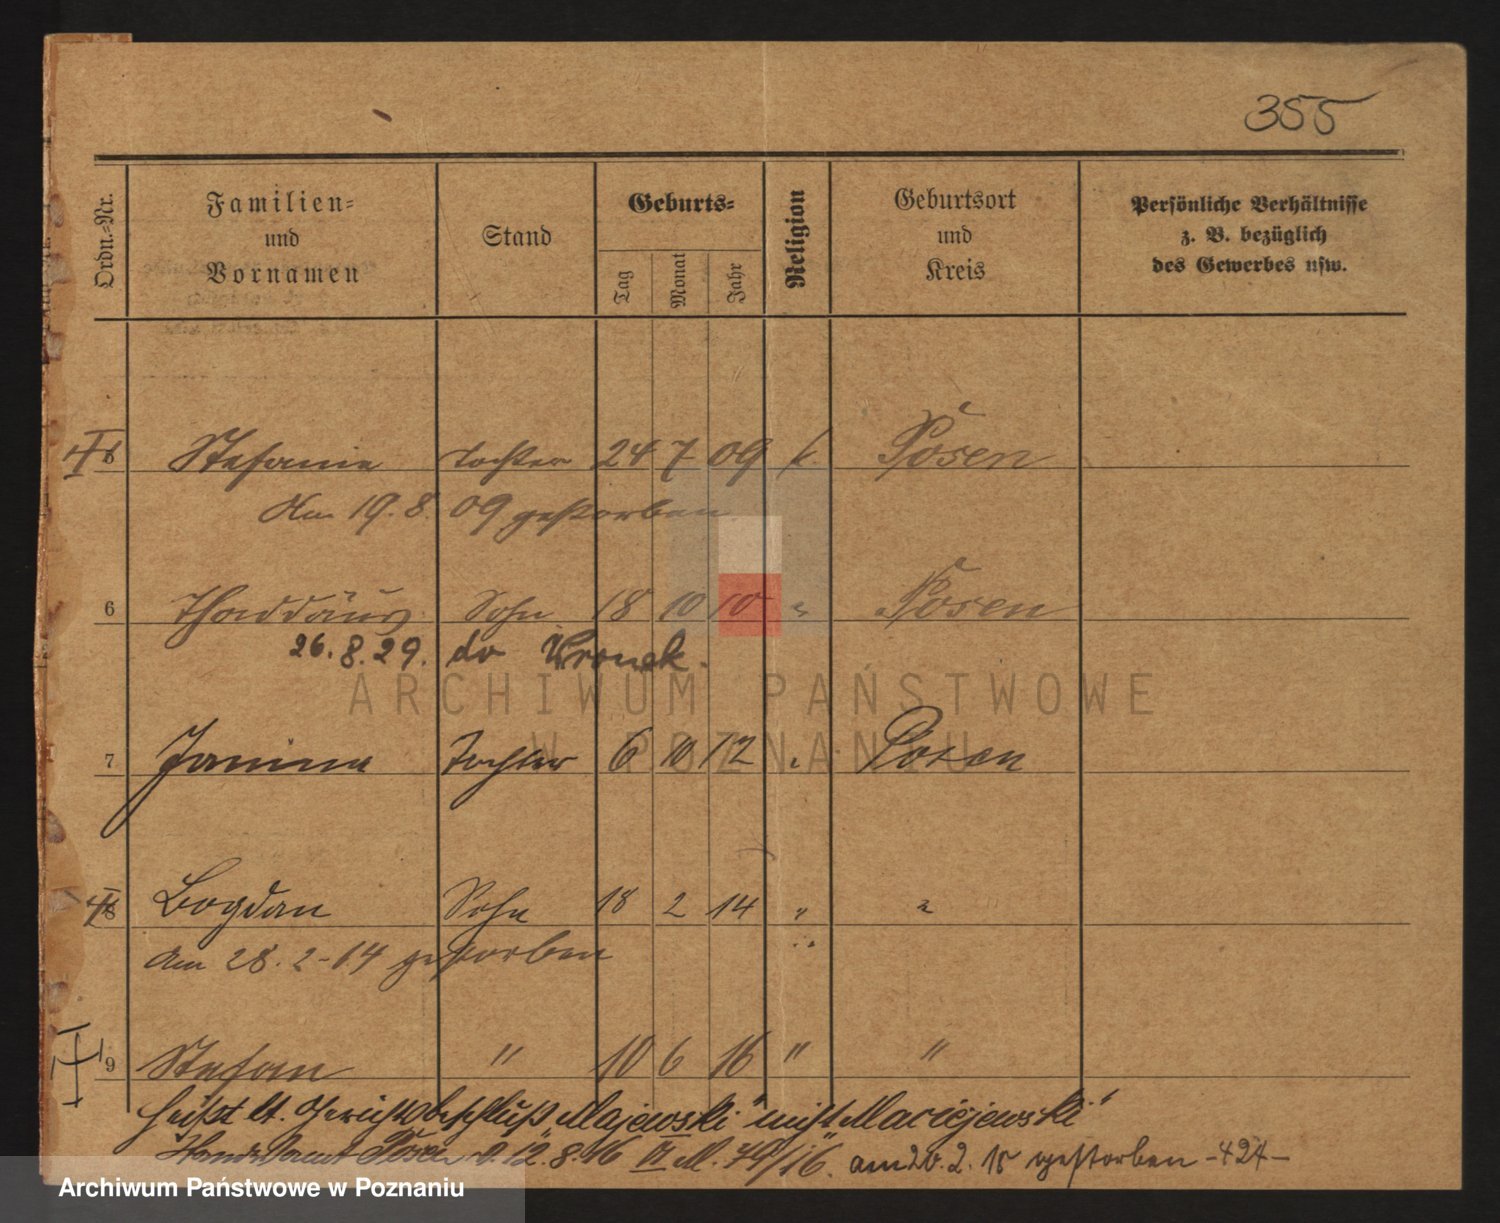 355
Ordn.-Nr.
Familien-
und
Vornamen
Stand
Geburts-
Tag
Monat
Jahr
Religion
Geburtsort
und
Kreis
Persönliche Verhältnisse
z. B. bezüglich
des Gewerbes usw.
Stefanie Tochter 24 7 09 k. Posen
Am 19. 8. 09 gestorben
6 Thaddäus Sohn 18 10 10 " Posen
26. 8. 29. do Wronek.
ARCHIWUM PAŃSTWOWE
W POZNANIU
7 Janina Tochter 6 10 12 " Posen
8 Bogdan Sohn 18 2 14 " "
Am 28. 2-14 gestorben
9 Stefan " 10 6 16 " "
heißt lt. Gerichtsbeschluß „Majewski" nicht „Maciejewski"
Posen d. 12. 8. 16 gestorben -424-
Archiwum Państwowe w Poznaniu